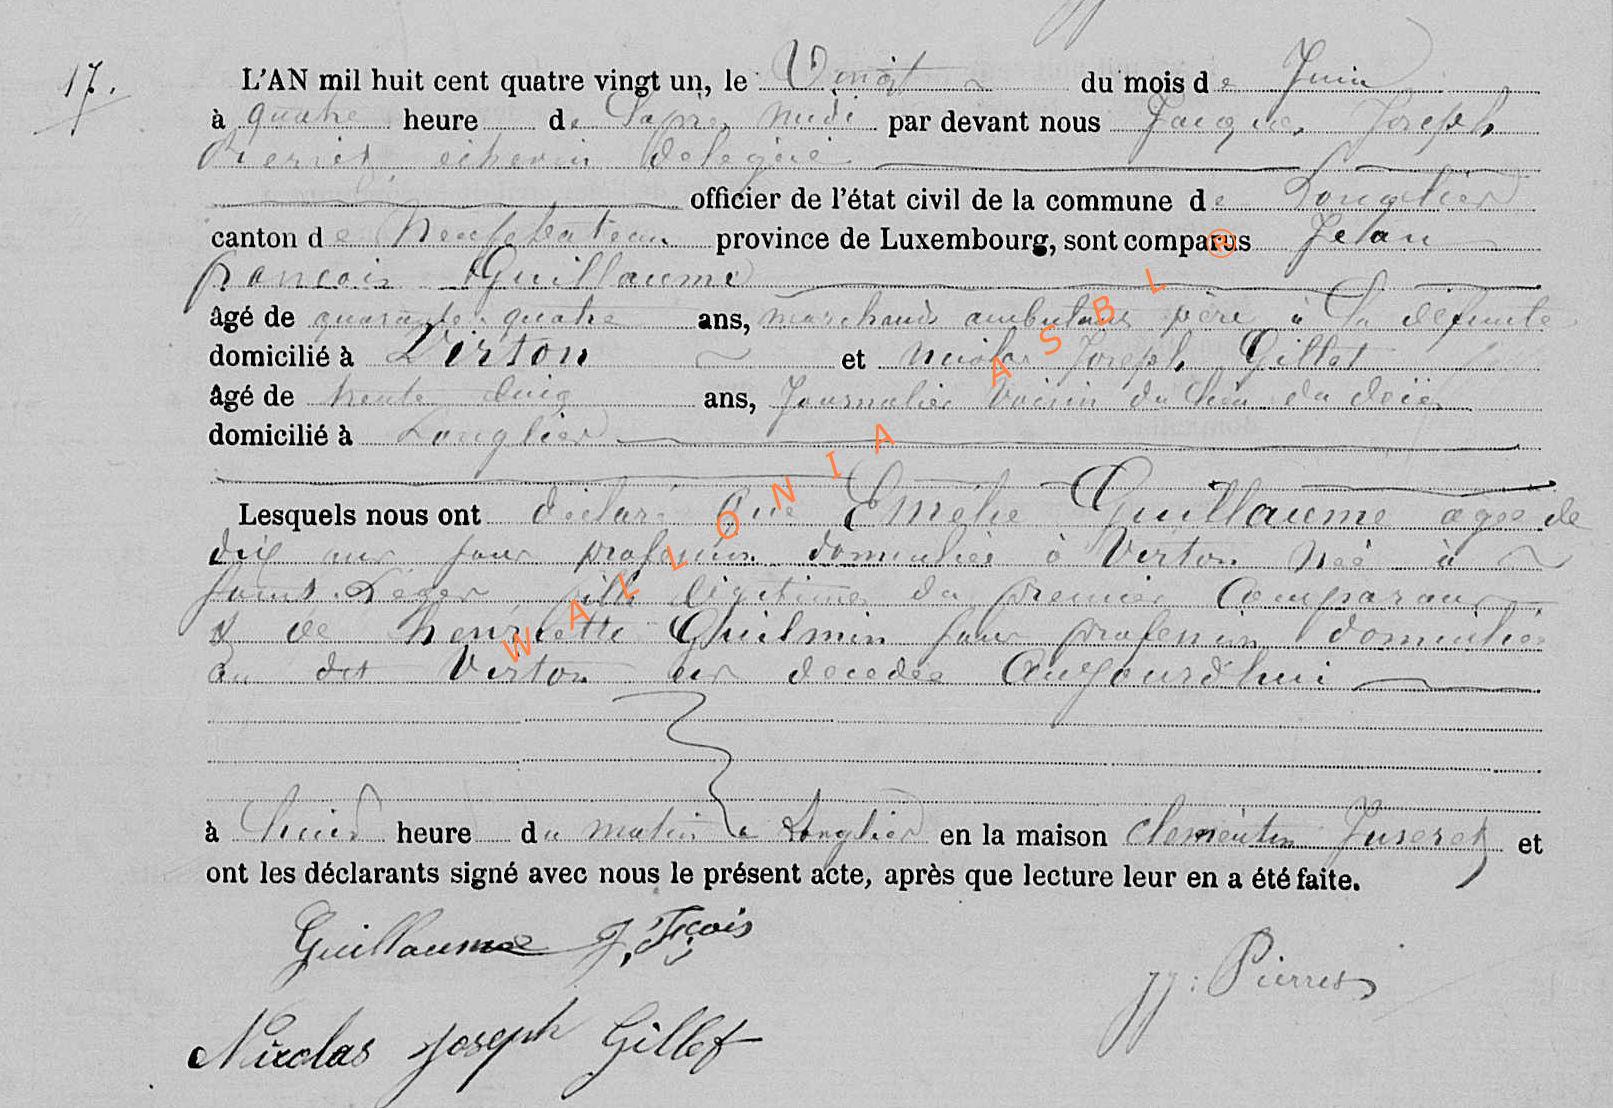 17.
L'AN mil huit cent quatre vingt un, le Vingt du mois de Juin
à quatre heure de L'aprés midi par devant nous Jacques Joseph
Pierret échevin délégué
officier de l'état civil de la commune de Longlier
canton de Neufchateau province de Luxembourg, sont comparus Jean
françois Guillaume
âgé de quarante quatre ans, marchand ambulant père à la défunte
domicilié à Virton et Nicolas Joseph Gillet
âgé de trente cinq ans, Journalier voisin du lieu du décès
domicilié à Longlier
Lesquels nous ont déclaré que Emélie Guillaume agée de
dix ans sans profession domiciliée à Virton née à
saint Léger fille légitime du premier Comparant
et de henriette Ghilmin sans profession domiciliée
au dit Virton est décédée Aujourd'hui
à huit heure du matin à Longlier en la maison clémentin Juseret et
ont les déclarants signé avec nous le présent acte, après que lecture leur en a été faite.
Guillaume J. Fçois
JJ: Pierret
Nicolas Joseph Gillet
WALLONIA ASBL ®